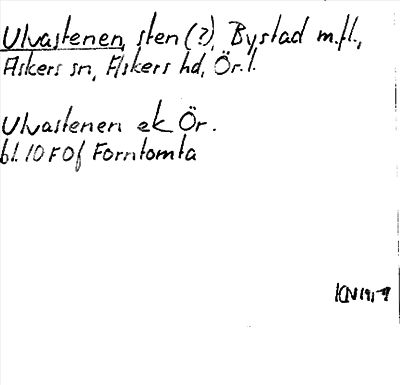 Ulvastenen, sten (?), Bystad m.fl.,
Askers sn, Askers hd, Ör. l.
Ulvastenen ek Ör.
bl. 10 F 0f Forntomta